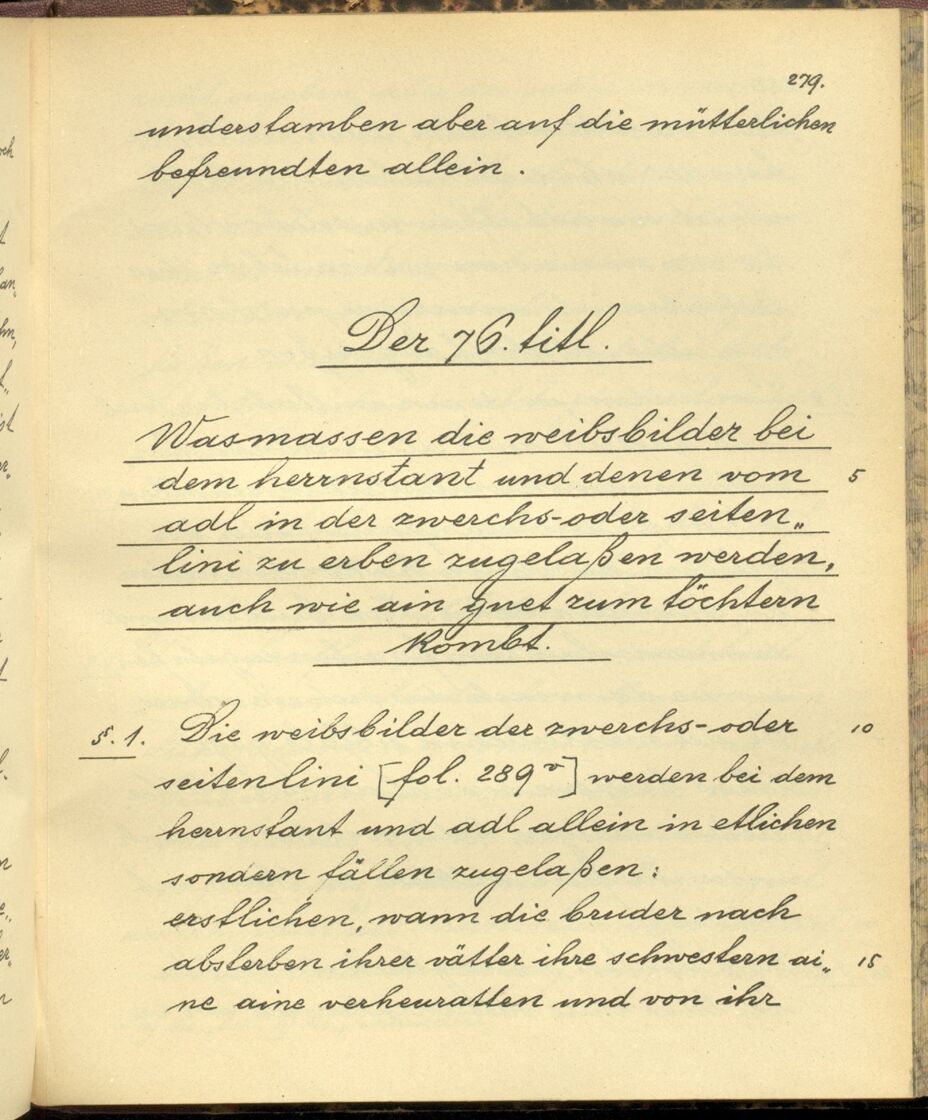 279.
understamben aber auf die mütterlichen
befreundten allein.
Der 76. titl.
Wasmassen die weibsbilder bei
dem herrnstant und denen vom 5
adl in der zwerchs- oder seiten„
lini zu erben zugelaßen werden,
auch wie ain guet zum töchtern
kombt.
§. 1. Die weibsbilder der zwerchs- oder 10
seitenlini [fol. 289 v] werden bei dem
herrnstant und adl allein in etlichen
sondern fällen zugelaßen:
erstlichen, wann die bruder nach
absterben ihrer vätter ihre schwestern ai„ 15
ne aine verheuratten und von ihr